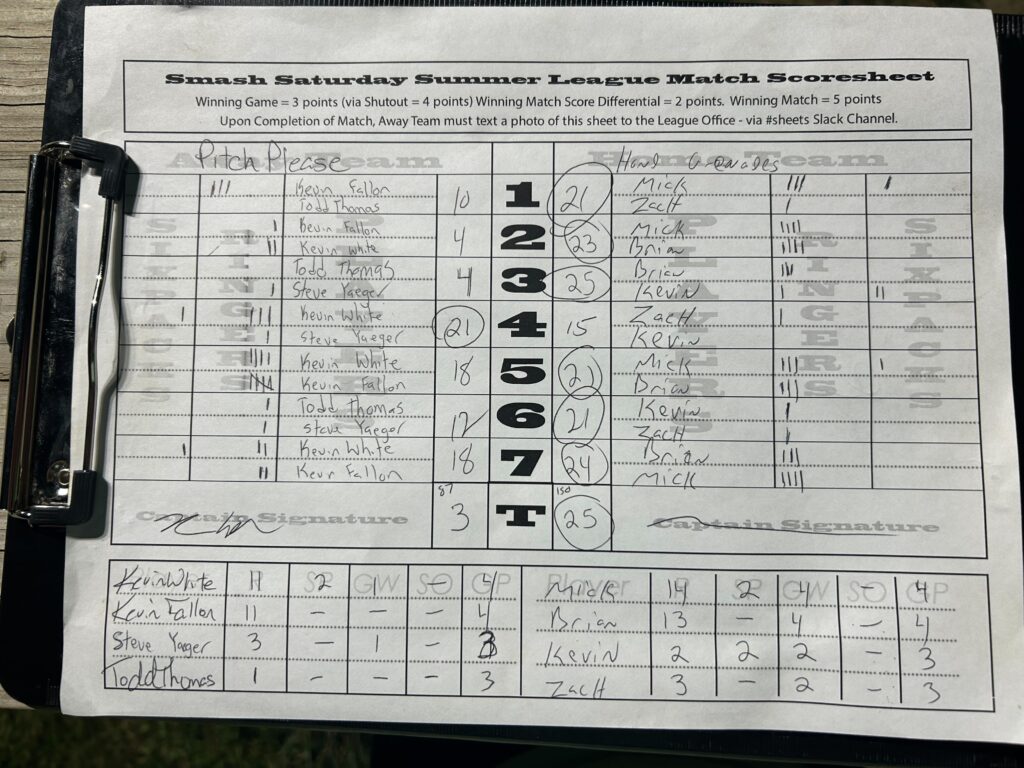 Smash Saturday Summer League Match Scoresheet
Winning Game = 3 points (via Shutout = 4 points) Winning Match Score Differential = 2 points. Winning Match = 5 points
Upon Completion of Match, Away Team must text a photo of this sheet to the League Office - via #sheets Slack Channel.
Away Team Pitch Please Home Team Hand Grenades
SIXPACKS RINGERS PLAYERS PLAYERS RINGERS SIXPACKS
III Kevin Fallon Mick III I
Todd Thomas 10 1 21 Zach I
I Kevin Fallon Mick IIII
II Kevin White 4 2 23 Brian IIIII
Todd Thomas Brian III
I Steve Yaeger 4 3 25 Kevin I II
I IIII Kevin White Zach I
I Steve Yaeger 21 4 15 Kevin
IIIII Kevin White Mick III I
IIII Kevin Fallon 18 5 21 Brian III
I Todd Thomas Kevin I
I Steve Yaeger 12 6 21 Zach I
I II Kevin White Brian III
II Kevin Fallon 18 7 24 Mick IIII
87 150
Captain Signature 3 T 25 Captain Signature
Kevin White 11 2 1 - 4 Mick 14 2 4 - 4
Player R SP GW SO GP Player R SP GW SO GP
Kevin Fallon 11 - - - 4 Brian 13 - 4 - 4
Steve Yaeger 3 - 1 - 3 Kevin 2 2 2 - 3
Todd Thomas 1 - - - 3 Zach 3 - 2 - 3